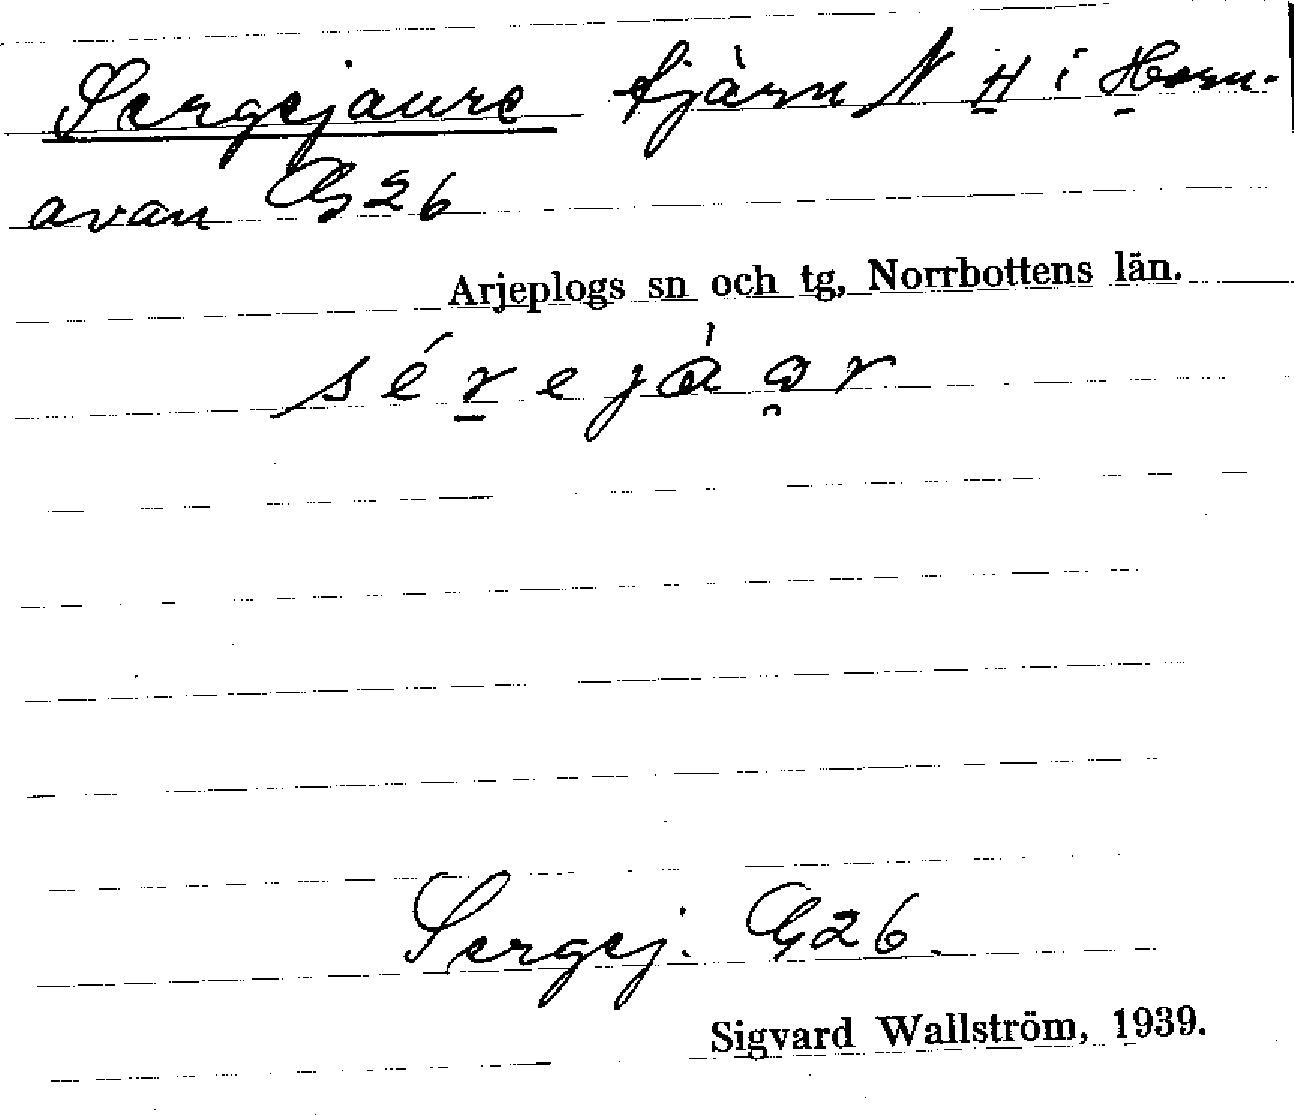 Sergejaure tjärn N H i Horn-
avan G 26
Arjeplogs sn och tg, Norrbottens län.
Sergej. G 26.
Sigvard Wallström, 1939.